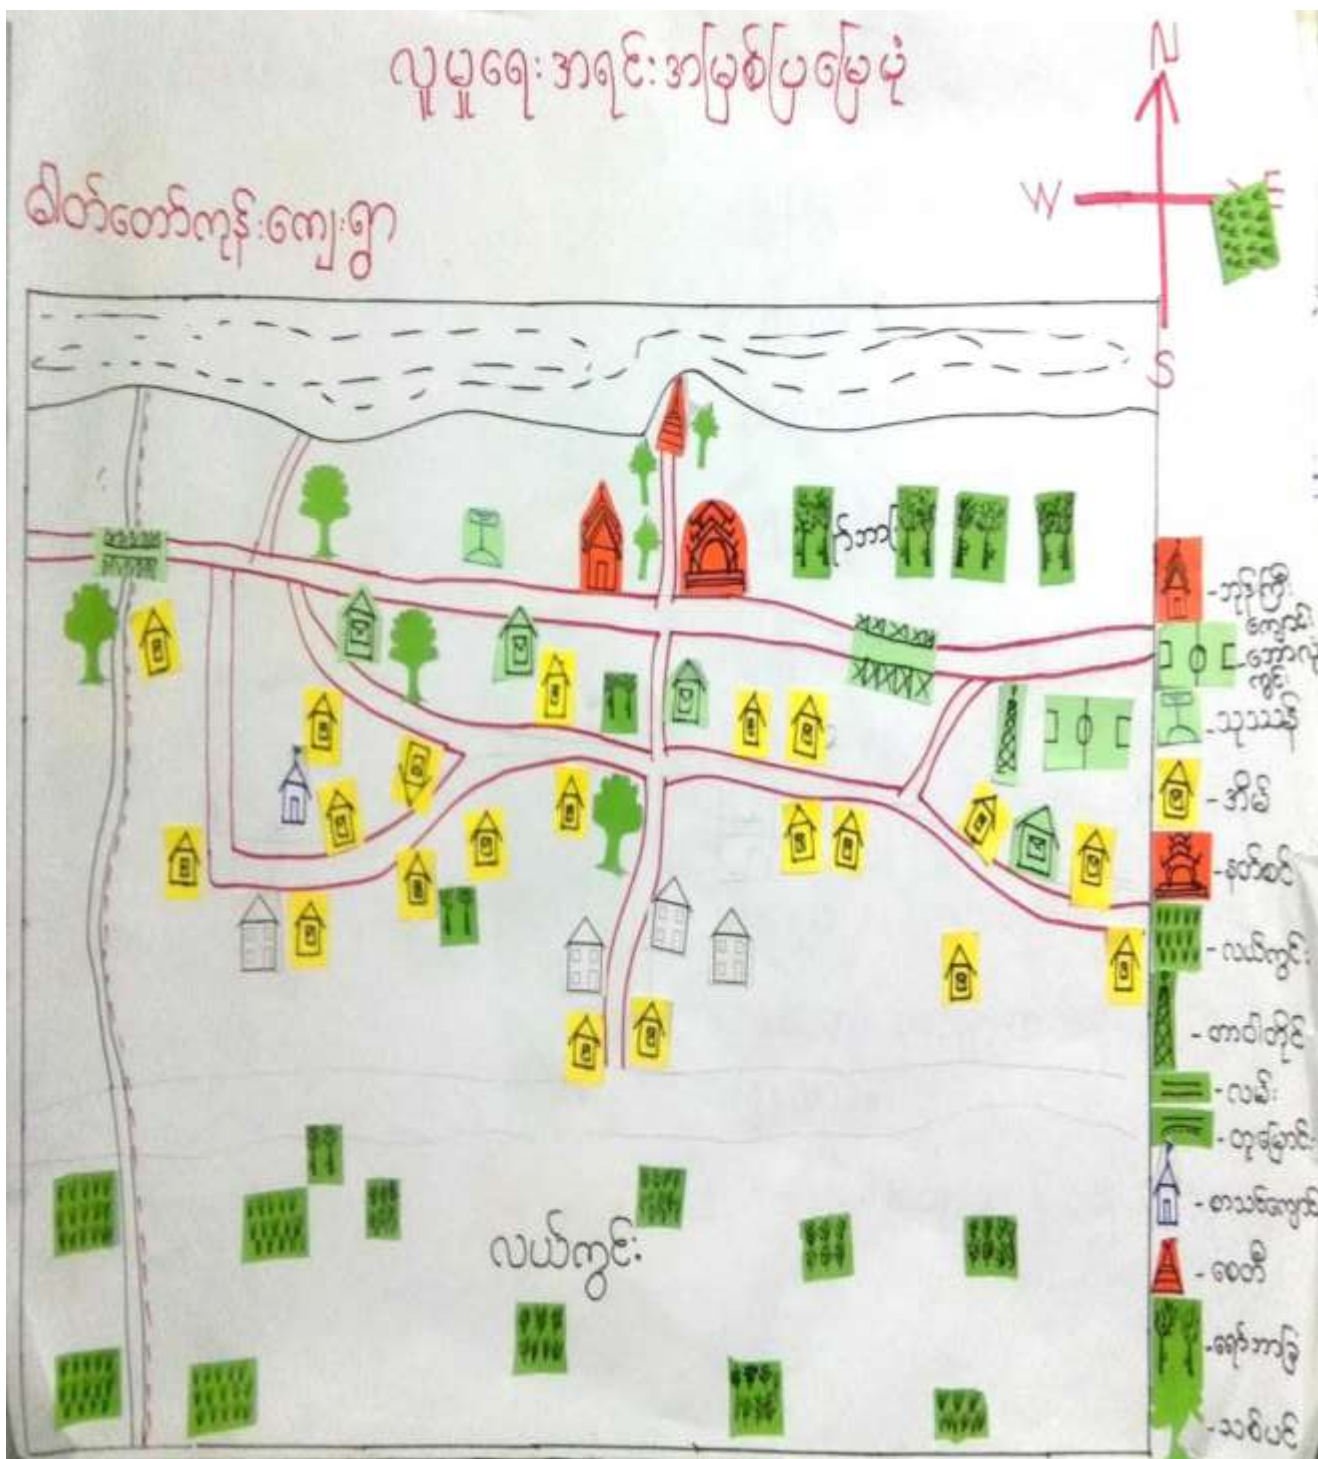 လူမှုရေးအရင်းအမြစ်ပြမြေပုံ
N
W
S
ဓါတ်တော်ကုန်းကျေးရွာ
-ဘုန်းကြီး
ကျောင်း
-ဘောလုံး
ကွင်း
-သုဿန်
-အိမ်
-နတ်စင်
-လယ်ကွင်း
-တာဝါတိုင်
-လမ်း
-တူးမြောင်း
-စာသင်ကျောင်း
-စေတီ
-ရော်ဘာခြံ
-သစ်ပင်
လယ်ကွင်း